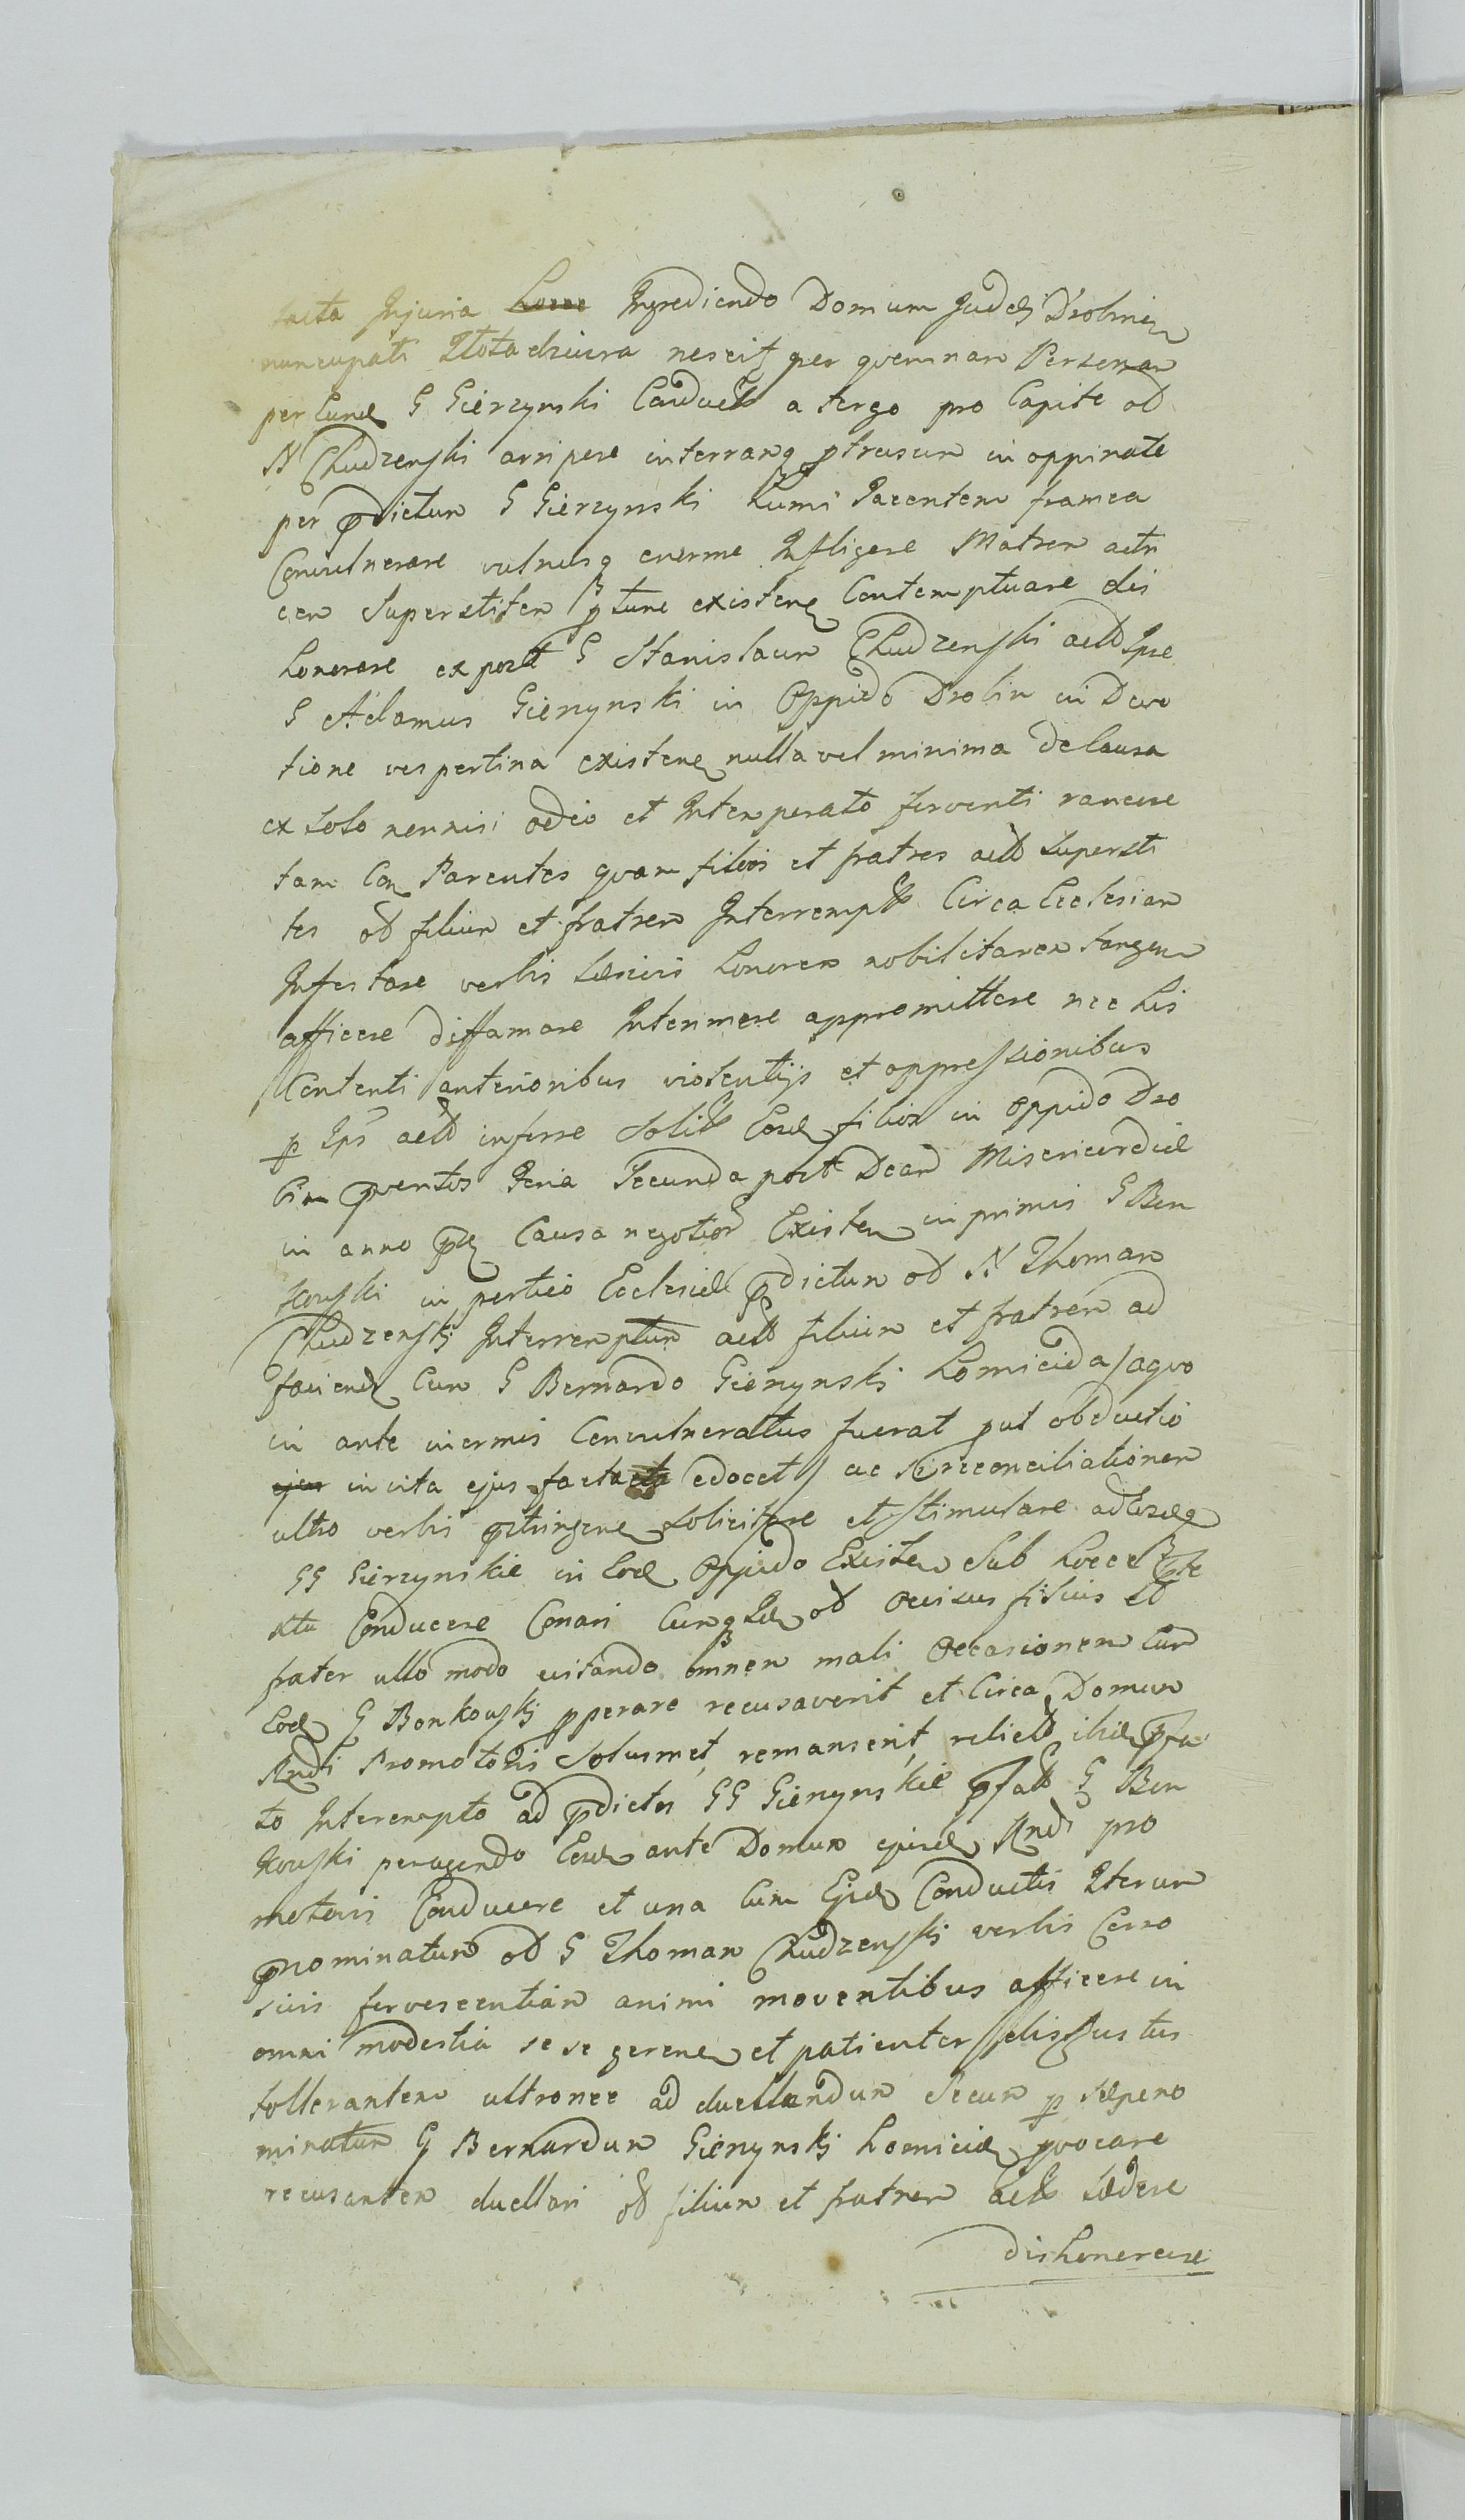 facta Injuria Ingrediendo Domum Judei Drobinen
nuncupati nescit per quemnam Personam
per Eund G Gierzynski a tergo pro Capite od
N Chudzenski arripere in terramq ptrusum inoppinate
per pdictum G Gierzynski humi Jacentem framea
Convulnerare vulnusq enorme Infligere Matrem actri
cem Superstitem ptunc existen Contemptuare dis
honorare ex post G Stanislaum Chudzenski act Ipse
G Adamus Gierzynski in Oppido Drobin in Devo
tione vespertina existen nulla vel minima de Causa
ex solo nonnisi odio et Intemperato ferventi rancore
tam Con Parentes quam filios et fratres act Supersti
tes od filium et fratrem Interrempt Circa Ecclesiam
Infestare verbis læsivis honorem nobilitarem tangen
afficere diffamare Interimere appromittere nec his
Contenti anterioribus violentijs et oppressionibus
p Ips act inferre Solit Eosd filios in Oppido Dro
bin pventos Feria Secunda post Dcam Misericordiæ
in anno pt Causa negotior Existen in primis G Bon
kouski in porticio Ecclesiæ pdictum od N Thomam
Chudzenskj Interremptum act filium et fratrem ad
faciend Cum G Bernardo Gierzynskj homicida / a quo
in ante inermis Convulneratus fuerat put obductio
ejus in vita ejus facta edocet / ac reconciliationem
ultro verbis pstringen solicitare et stimulare ad Eosdq
GG Gierzynskie in Eod Oppido Existen Sub hocce pte
xtu Conducere Conari Cumq Id od occisus filius et
frater ullo modo vitando omnem mali Occasionem Cum
Eod G Bonkouskj pperare recusaverit et Circa Domum
Rndi Promotoris Solusmet remanserit relict ibid pfa
to Interempto ad pdictos GG Gierzynskie pfat G Bon
kouski peragendo Eosd ante Domum ejusd Rndi pro
motoris Conducere et una Cum Eisd Conductis Iterum
pnominatum od G Thomam Chudzenskj verbis Corro
sivis fervescentiam animi moventibus afficere in
omni modestia sese geren et patienter
tollerantem ultronee ad duellandum Secum p sæpeno
minatum G Bernardum Gierzynskj homicid pvocare
recusantem duellari od filium et fratrem act lædere
dishonorare